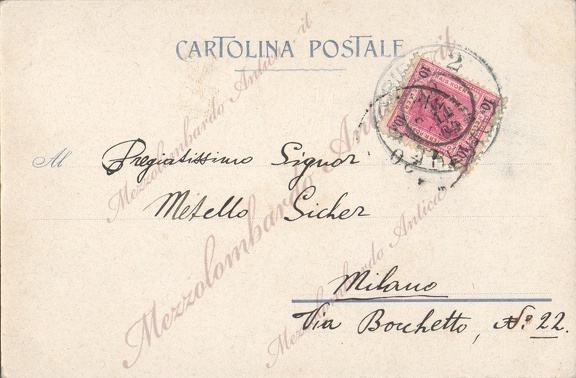 CARTOLINA POSTALE
Al Pregiatissimo Signor
Metello Sicher
Milano
Via Bocchetto, N: 22.
10
10
Mezzolombardo Antica.it
Mezzolombardo Antica.it
Mezzolombardo Antica